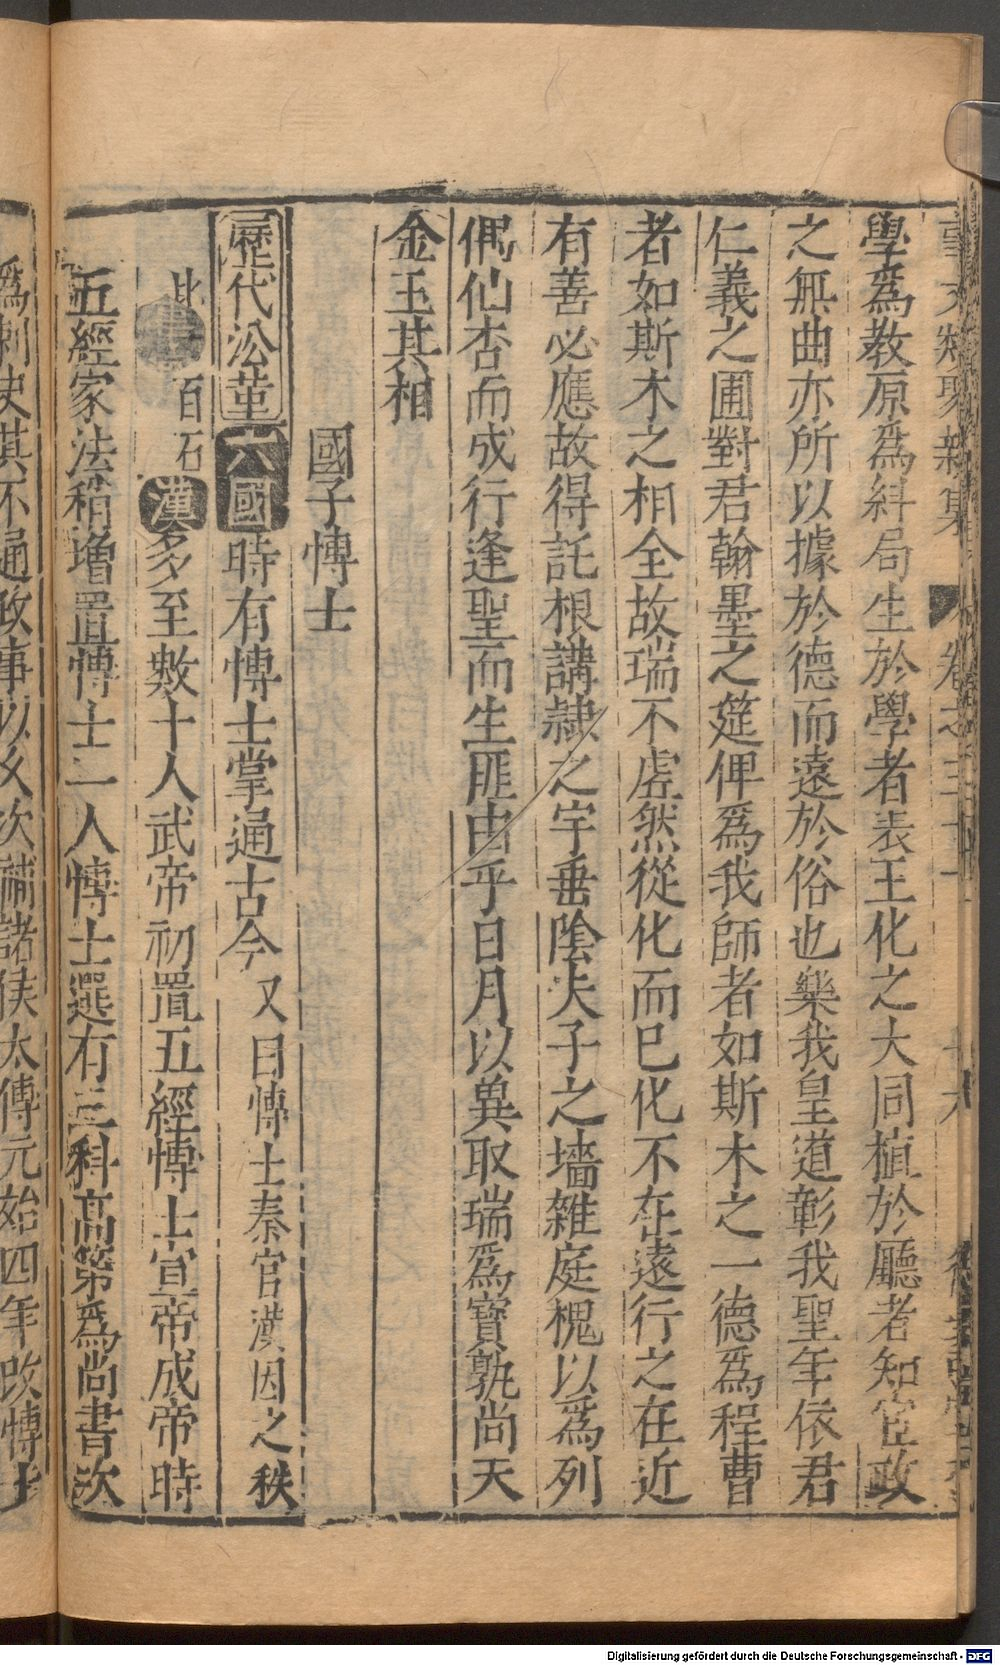 事文類聚新集 卷之三十一
學爲教原爲紏局生於學者表王化之大同植於廳者知宦政
之無曲亦所以據於德而遠於俗也樂我皇道彰我聖年依君
仁義之圃對君翰墨之筵俾爲我師者如斯木之一德爲程曹
者如斯木之相全故瑞不虗然從化而已化不在遠行之在近
有善必應故得託根講隷之宇垂陰夫子之墻雜庭槐以爲列
偶仙杏而成行逢聖而生匪由乎日月以異取瑞爲寳孰尚天
金玉其相
國子愽士
歷代沿革 六國 時有愽士掌通古今 又曰愽士秦官漢因之秩
比 百石 漢 多至數十人武帝初置五經愽士宣帝成帝時
五經家法稍增置愽士一人愽士選有三科高第爲尚書次
爲刺史其不通政事以久次補諸侯太傅元始四年改愽士
Digitalisierung gefördert durch die Deutsche Forschungsgemeinschaft - DFG